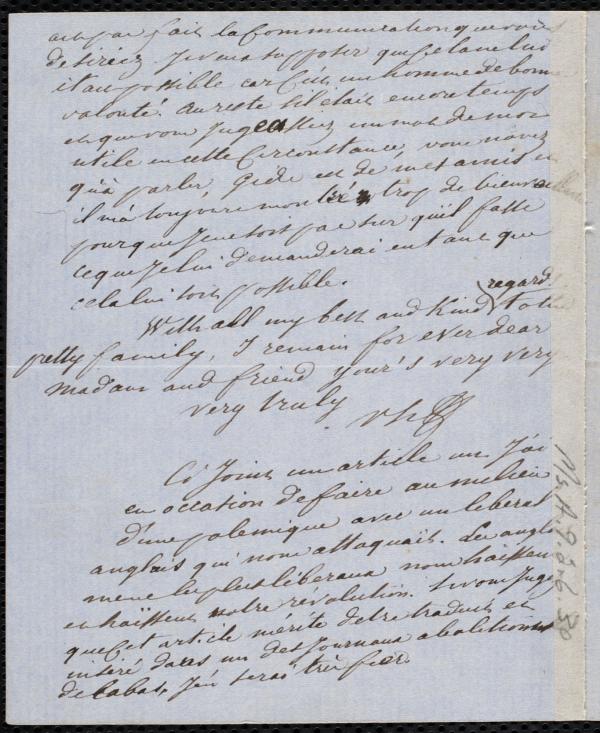 ait pas fait la Communication que vous
desiriez. Je veux supposer que cela ne lui
était possible car c'est un homme de bonne
volonté. Au reste s'il était encore temps
et que vous Jugeassiez un mot de moi
utile en cette Circonstance, vous n'avez
qu'à parler, est de mes amis et
il m'a toujours montré trop de bienveillance
pour que Je ne sois pas sur qu'il fasse
ce que Je lui demanderai en tant que
cela lui sois possible.
With all my best and Kind regard to the
pretty family, I remain for ever dear
madam and friend your's very very
very truly
Ci Joint un article que J'ai
eu occasion de faire au milieu
d'une polemique avec un liberal
anglais qui nous attaquait. Les anglais
même les plus libéraux nous haïssent
et haïssent notre révolution. Si vous Jugez
que Cet article mérite d'etre traduit et
inséré dans un des Journaux abolitionnistes
de labas, J'en serai très fier.
Ms. A.9.2.6 30